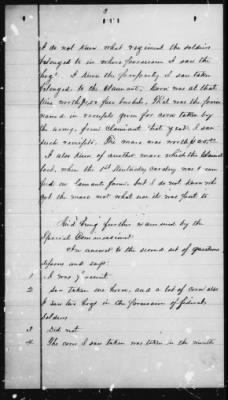 I do not know what regiment the soldiers
belonged to in whose possession I saw the
hogs. I know the property I saw taken
belonged to the claimant. Corn was at that
time worth per bushel. That was the
named in receipts given for corn taken by
the army, from claimant that year. I saw
such receipts. The mare was worth
I also knew of another mare which the claimant
lost, when the 1st Kentucky cavalry was
on farm, but I do not know who
got the mare nor what use she was put to.
further examined by the
Special Commissioner.
In answer to the second set of questions
deposes and says:
1 I was present
2 Saw taken one horse, and a lot of corn also
I saw two hogs in the possession of federal
soldiers
3 Did not
4 The corn I saw taken was taken in the month